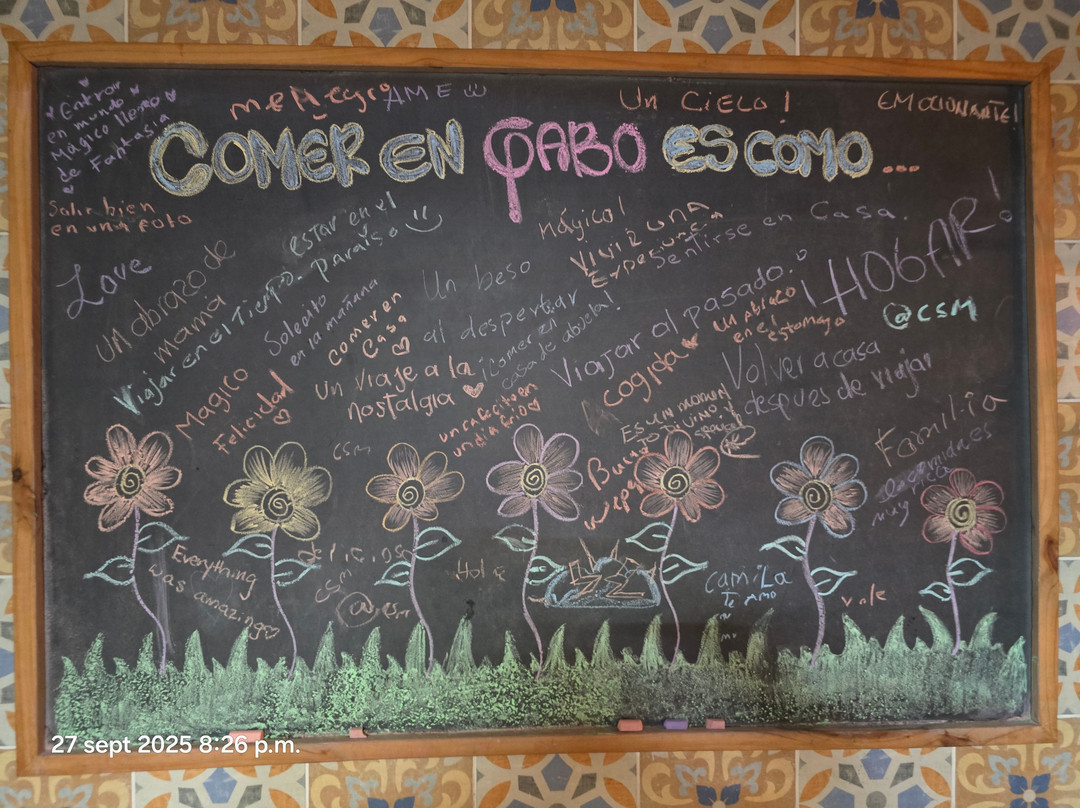 Entrar
en mundo
Mágico lleno
de Fantasía
me Alegro
AME
Un Cielo!
EMOCIONANTE!
COMER EN GABO ES COMO...
Salir bien
en una foto
Love
un abrazo de
mamá
estar en el
paraíso
Viajar en el Tiempo.
Mágico!
VIVIR UNA
Sentirse en Casa.
¡HOGAR!
Un beso
al despertar
Soleadito
en la mañana
comer en
Casa
¡Comer en
casa de abuela!
Viajar al pasado.
un Abrazo
en el
estomago
@CSM
Magico
Felicidad
un viaje a la
nostalgia
un cafecito en
un dia frio
cogida
Volver a casa
despues de viajar
Es un momen
to Divino
Familia
csm
Everything
was amazing
Delicios
csm
Hola
Camila
Te Amo
vale
27 sept 2025 8:26 p.m.